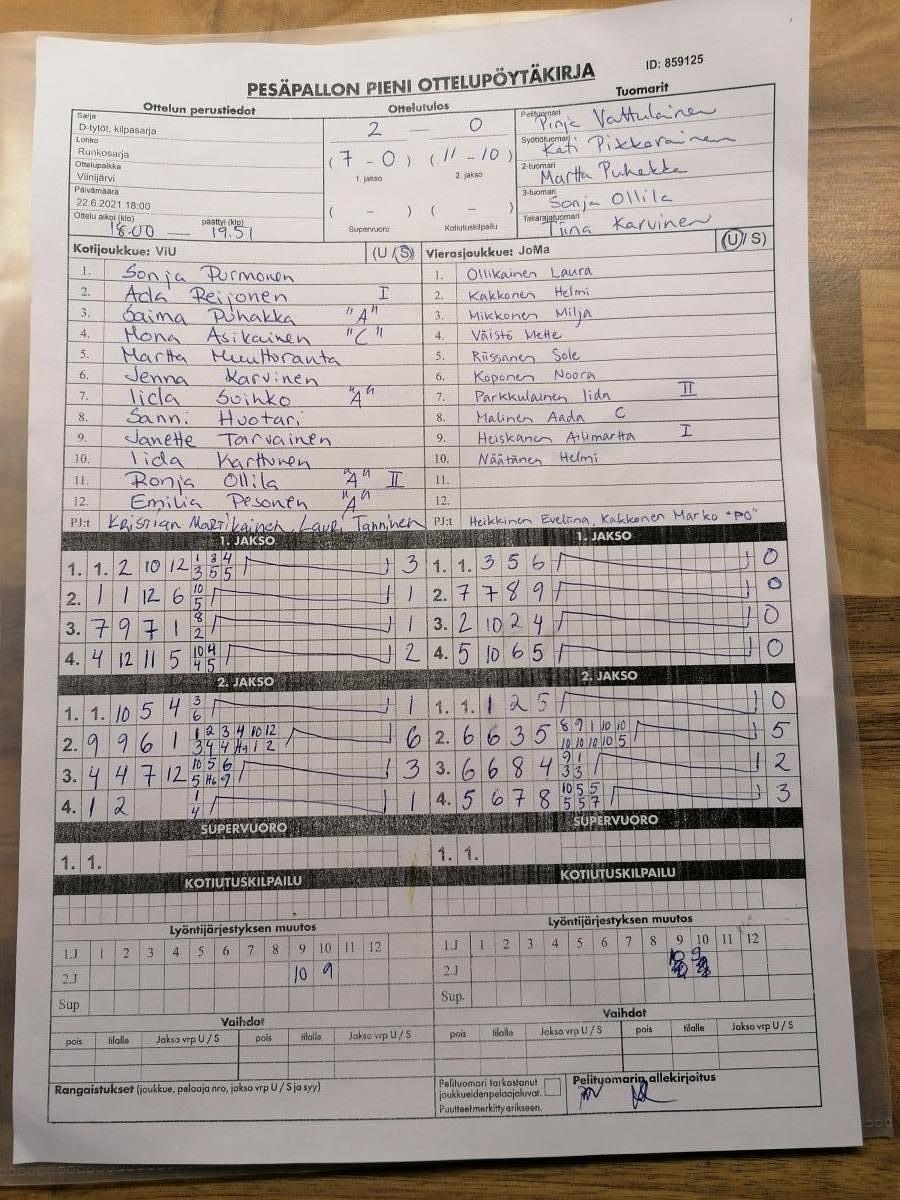 ID: 859125
PESÄPALLON PIENI OTTELUPÖYTÄKIRJA
Ottelun perustiedot
Sarja
D-tytöt, kilpasarja
Lohko
Runkosarja
Ottelupaikka
Viinijärvi
Päivämäärä
22.6.2021 18:00
Ottelu alkoi (klo) päättyi (klo)
18.00 — 19.51
Ottelutulos
2 — 0
(7 - 0) (11 - 10)
1. jakso 2. jakso
( - ) ( - )
Supervuoro Kotiutuskilpailu
Tuomarit
Pelituomari Pinja Vattulainen
Syöttötuomari Kati Pikkarainen
2-tuomari Martta Puhakka
3-tuomari Sonja Ollila
Takarajatuomari Tiina Karvinen
Kotijoukkue: ViU (U/S)
1. Sonja Purmonen
2. Ada Reijonen I
3. Saima Puhakka "A"
4. Mona Asikainen "C"
5. Martta Muuttoranta
6. Jenna Karvinen
7. Iida Soinko "A"
8. Sanni Huotari
9. Janette Tarvainen
10. Iida Karttunen
11. Ronja Ollila "A" II
12. Emilia Pesonen "A"
PJ:t Kristian Martikainen, Lauri Tanninen
Vierasjoukkue: JoMa (U/S)
1. Ollikainen Laura
2. Kakkonen Helmi
3. Mikkonen Milja
4. Väistö Mette
5. Riissanen Sole
6. Koponen Noora
7. Parkkulainen Iida II
8. Malinen Aada C
9. Heiskanen Ailimartta I
10. Näätänen Helmi
11.
12.
PJ:t Heikkinen Eveliina, Kakkonen Marko "PO"
1. JAKSO
1. 1. 2 10 12 1 3 4 3
3 5 5
2. 1 1 12 6 10 1
5
3. 7 9 7 1 8 1
2
4. 4 12 11 5 10 4 2
4 5
1. JAKSO
1. 1. 3 5 6 0
2. 7 7 8 9 0
3. 2 10 2 4 0
4. 5 10 6 5 0
2. JAKSO
1. 1. 10 5 4 3 1
6
2. 9 9 6 1 1 2 3 4 10 12 6
3 4 4 1 2
3. 4 4 7 12 10 5 6 3
5 H6 9
4. 1 2 1 1
4
2. JAKSO
1. 1. 1 2 5 0
2. 6 6 3 5 8 9 1 10 10 5
10 10 10 10 5
3. 6 6 8 4 9 1 2
3 3
4. 5 6 7 8 10 5 5 3
5 5 7
SUPERVUORO
1. 1.
SUPERVUORO
1. 1.
KOTIUTUSKILPAILU
KOTIUTUSKILPAILU
Lyöntijärjestyksen muutos
1.J 1 2 3 4 5 6 7 8 9 10 11 12
2.J 10 9
Sup
Lyöntijärjestyksen muutos
1.J 1 2 3 4 5 6 7 8 9 10 11 12
2.J 10 9
Sup.
Vaihdot
pois tilalle Jakso vrp U / S pois tilalle Jakso vrp U / S
Vaihdot
pois tilalle Jakso vrp U / S pois tilalle Jakso vrp U / S
Rangaistukset (joukkue, pelaaja nro, jakso vrp U / S ja syy)
Pelituomari tarkastanut
joukkueiden pelaajaluvat.
Puutteet merkitty erikseen.
Pelituomarin allekirjoitus